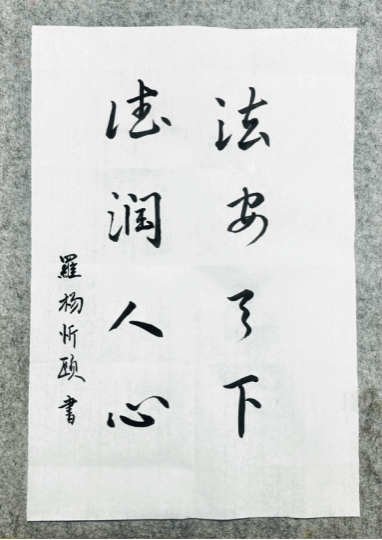 法安天下
德润人心
羅杨忻颐書